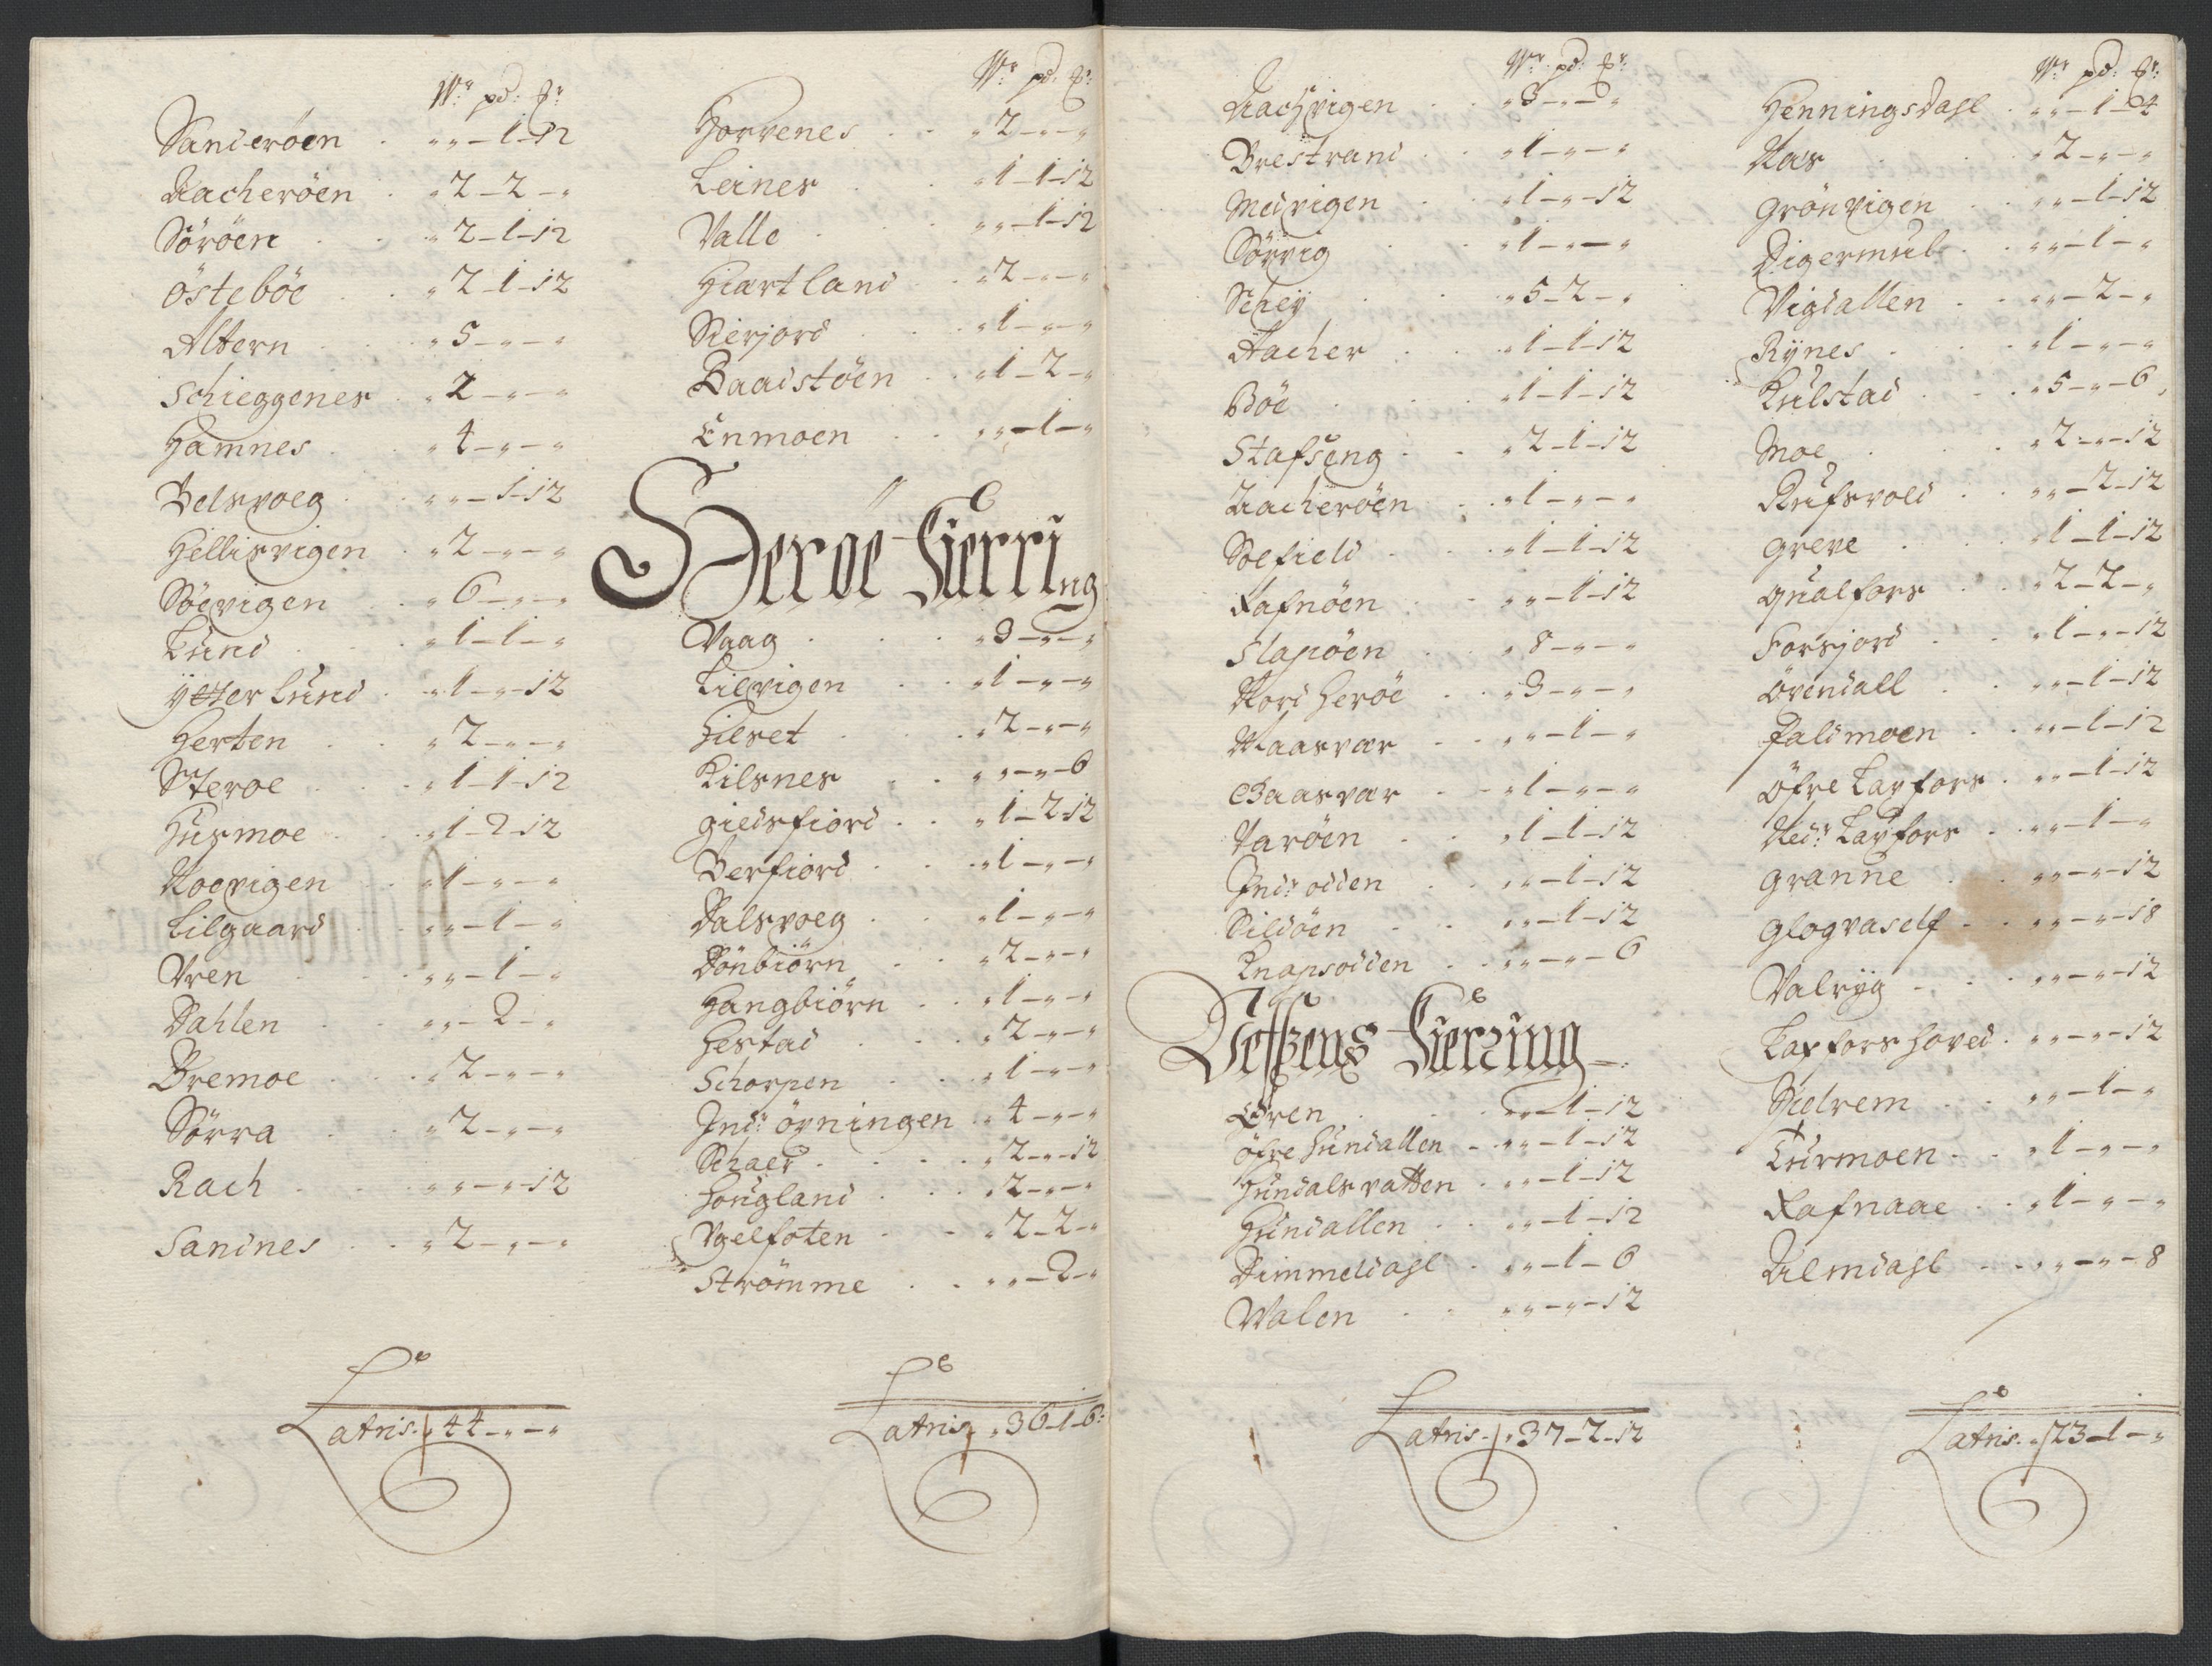 Wr pd: Er:
Sanderöen . „ „ – 1 – 12
Aacheröen . „ 2 – 2 – „
Söröen . . „ 2 – 1 – 12
Östeböe . . „ 2 – 1 – 12
Altern . . „ 5 – „ – „
Schieggenes . „ 2 – „ – „
Hamnes . „ 4 – „ – „
Belsvoeg . . „ „ – 1 – 12
Hellisvigen . „ 2 – „ – „
Söevigen . . „ 6 – „ – „
Lund . . „ 1 – 1 – „
Ytter Lund . „ 1 – „ – 12
Herten . . „ 2 – „ – „
Steroe . . „ 1 – 1 – 12
Husmoe . . „ 1 – 2 – 12
Noevigen . . „ 1 – „ – „
Lilgaard . . „ „ – 1 – „
Vren . . „ „ – 1 – „
Dahlen . . „ „ – 2 – „
Bremoe . . „ 2 – „ – „
Sörra . . „ 2 – „ – „
Rach . . „ „ – „ – 12
Sandnes . . „ 2 – „ – „
Latris. „ 44 – „ – „
Wr pd: Er:
Horvenes . . „ 2 – „ – „
Leines . . „ 1 – 1 – 12
Valle . . „ „ – 1 – 12
Hiartland . „ 2 – „ – „
Schierjord . . „ 1 – „ – „
Baadstöen . . „ 1 – 2 – „
Enmoen . . „ „ – 1 – „
Heröe Fierring
Vaag . . . „ 3 – „ – „
Lilevigen . . „ 1 – „ – „
Hilset . . „ 2 – „ – „
Kilsnes . . „ „ – „ – 6
Giedsfiord . . „ 1 – 2 – 12
Berfiord . . „ 1 – „ – „
Dalsvoeg . . „ 1 – „ – „
Dönbiörn . . „ 2 – „ – „
Hangbiörn . . „ 1 – „ – „
Hestad . . „ 2 – „ – „
Schorpen . . „ 1 – „ – „
Indr: öyningen . „ 4 – „ – „
Schaer . . . „ 2 – „ – 12
Hougland . . „ 2 – „ – „
Vgelfoten . . „ 2 – 2 – „
Strömme . . „ „ – 2 – „
Latris „ 36 – 1 – 6:
Wr pd: Er:
Aachvigen . . „ 3 – „ – „
Brestrand . . „ 1 – „ – „
Medvigen . . „ 1 – „ – 12
Sörvig . . „ 1 – „ – „
Schey . . „ 5 – 2 – „
Aacher . . „ 1 – 1 – 12
Böe . . „ 1 – 1 – 12
Stafseng . . „ 2 – 1 – 12
Aacheröen . . „ 1 – „ – „
Soefield . . „ 1 – 1 – 12
Rafnöen . . „ „ – 1 – 12
Slapöen . . „ 8 – „ – „
Nord Heröe . „ 3 – „ – „
Maasvær . . „ „ – 1 – „
Gaasvær . . „ 1 – „ – „
Varöen . . „ 1 – 1 – 12
Indr odden . . „ „ – 1 – 12
Sildöen . . „ „ – 1 – 12
Knapsodden . . „ „ – „ – 6
Vefszens Fierring
Ören . . „ „ – 1 – 12
Öfre Hundallen . „ „ – 1 – 12
Hundals vatten . „ „ – 1 – 12
Hundallen . . „ „ – 1 – 12
Dimmeldahl . „ „ – 1 – 6
Walen . . „ „ – „ – 12
Latris. „ 37 – 2 – 12
Wr pd: Er:
Henningsdahl . „ „ – 1 – 4
Nas . . „ 2 – „ – „
Grönvigen . . „ „ – 1 – 12
Digermul . . „ „ – 1 – „
Vigdallen . . „ „ – 2 – „
Rynes . . „ 1 – „ – „
Kulstad . . „ 5 – „ – 6
Moe . . „ 2 – „ – 12
Rufsvold . . „ „ – 2 – 12
Greve . . „ 1 – 1 – 12
Qualfors . . „ 2 – 2 – „
Forsjord . . „ 1 – „ – 12
Övendall . . „ „ – 1 – 12
Paldmoen . . „ „ – 1 – 12
Öfre Laxfors . „ „ – 1 – 12
Nedr: Laxfors . „ „ – 1 – „
Granne . . „ „ – „ – 12
Glogvaself . . „ „ – „ – 18
Valryg . . „ „ – „ – 12
Laxforshoved . „ „ – „ – 12
Sielrem . . „ „ – 1 – „
Turmoen . . „ 1 – „ – „
Rafnaae . . „ 1 – „ – „
Almdahl . . „ „ – „ – 8
Latris. „ 23 – 1 – „